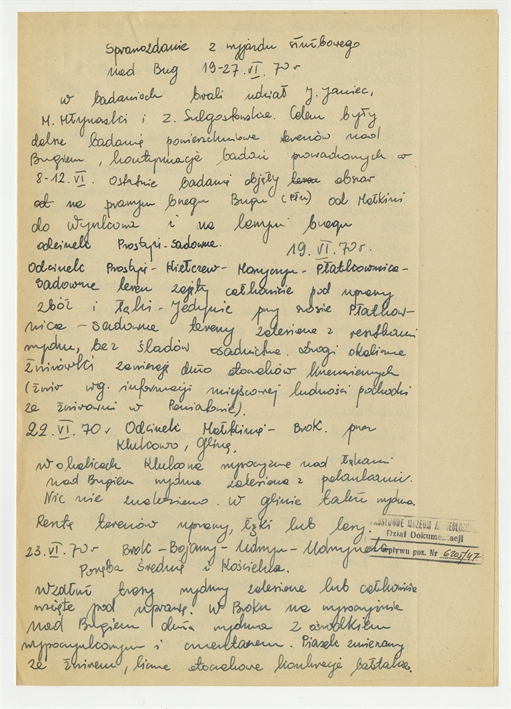 Sprawozdanie z wyjazdu służbowego
nad Bug 19-27.VI.70r
W badaniach brali udział J. Janiec,
M. Młynarski i Z. Sulgostowska. Celem były
dalsze badania powierzchniowe terenów nad
Bugiem, kontynuacja badań prowadzonych w
8-12.VI. Ostatnie badania objęły obszar
od na prawym brzegu Bugu (płn) od Małkini
do Wyszkowa i na lewym brzegu
odcinek Prostyń-Sadowne.
19.VI.70r.
Odcinek Prostyń - - - Płatkownica-
Sadowne teren zajęty całkowicie pod uprawy
zbóż i łąki - Jedynie przy szosie Płatkow-
nica - Sadowne tereny zalesione z resztkami
wydm, bez śladów osadnictwa. Drogi okoliczne
żwirówki zawierają dużo otoczaków krzemiennych
(żwir wg. informacji miejscowej ludności pochodzi
ze żwirowni w ).
22.VI.70r Odcinek Małkinia - Brok. przez
Klukowo, Glinę.
W okolicach Klukowa wyraźne nad łąkami
nad Bugiem wydma zalesiona z polankami.
Nic nie znaleziono. W Glinie także wydma.
Reszta terenów uprawy, łąki lub lasy.
PAŃSTWOWE MUZEUM ARCHEOLOGICZNE
Dział Dokumentacji
wpływu poz. Nr 6205/47
23.VI.70r Brok - Bojany - Udryn - Udrynek
Poręba Średnia i Kościelna.
Wzdłuż trasy wydmy zalesione lub całkowicie
wzięte pod uprawę. W Broku na wyniesieniu
nad Bugiem duża wydma z ośrodkiem
wypoczynkowym i cmentarzem. Piasek zmieszany
ze żwirem, liczne otoczakowe konkrecje bałtyckie.